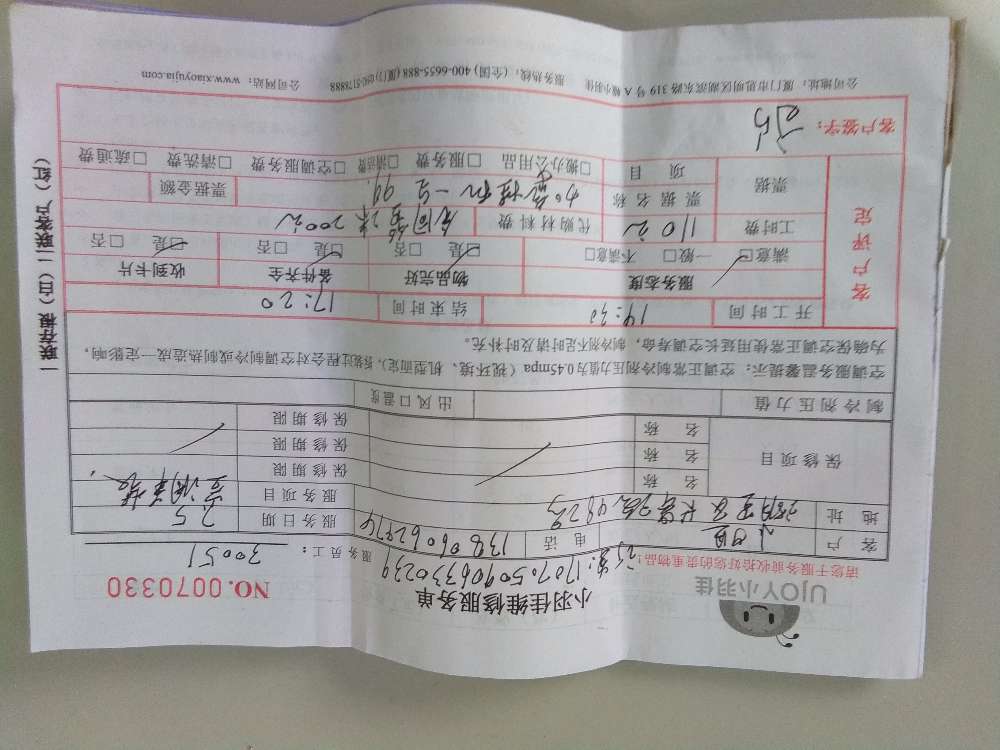 UJOY小羽佳
小羽佳维修服务单
NO.0070330
请您于服务前收拾好您的贵重物品!
1707050906330239
服务员工: 30051
客 户
电 话 13806062974
服务日期 7.5
地 址
服务项目 空调年检
保修项目
名 称 保修期限
名 称 保修期限
名 称 保修期限
制冷剂压力值
出风口温度
空调服务温馨提示: 空调正常制冷剂压力值为0.45mpa(视环境、机型而定),移装过程会对空调制冷或制热造成一定影响,
为确保空调正常使用延长空调寿命,制冷剂不足时请及时补充。
客户评定
开工时间 14:30 结束时间 17:20
服务态度 物品完好 备件齐全 收到卡片
☑满意 一般□ 不满意□ ☑是 □否 ☑是 □否 ☑是 □否
工时费 110元 代购材料费 合同 200元
票据 票据名称 票据金额
项 目 □搬办公用品 □服务费 □清洁费 □空调服务费 □清洗费 □疏通费
客户签字:
公司地址: 厦门市思明区湖滨东路319号A幢小羽佳 服务热线: (全国)400-6655-888 (厦门)0592-5178888 公司网站: www.xiaoyujia.com
一联存根(白)二联客户(红)